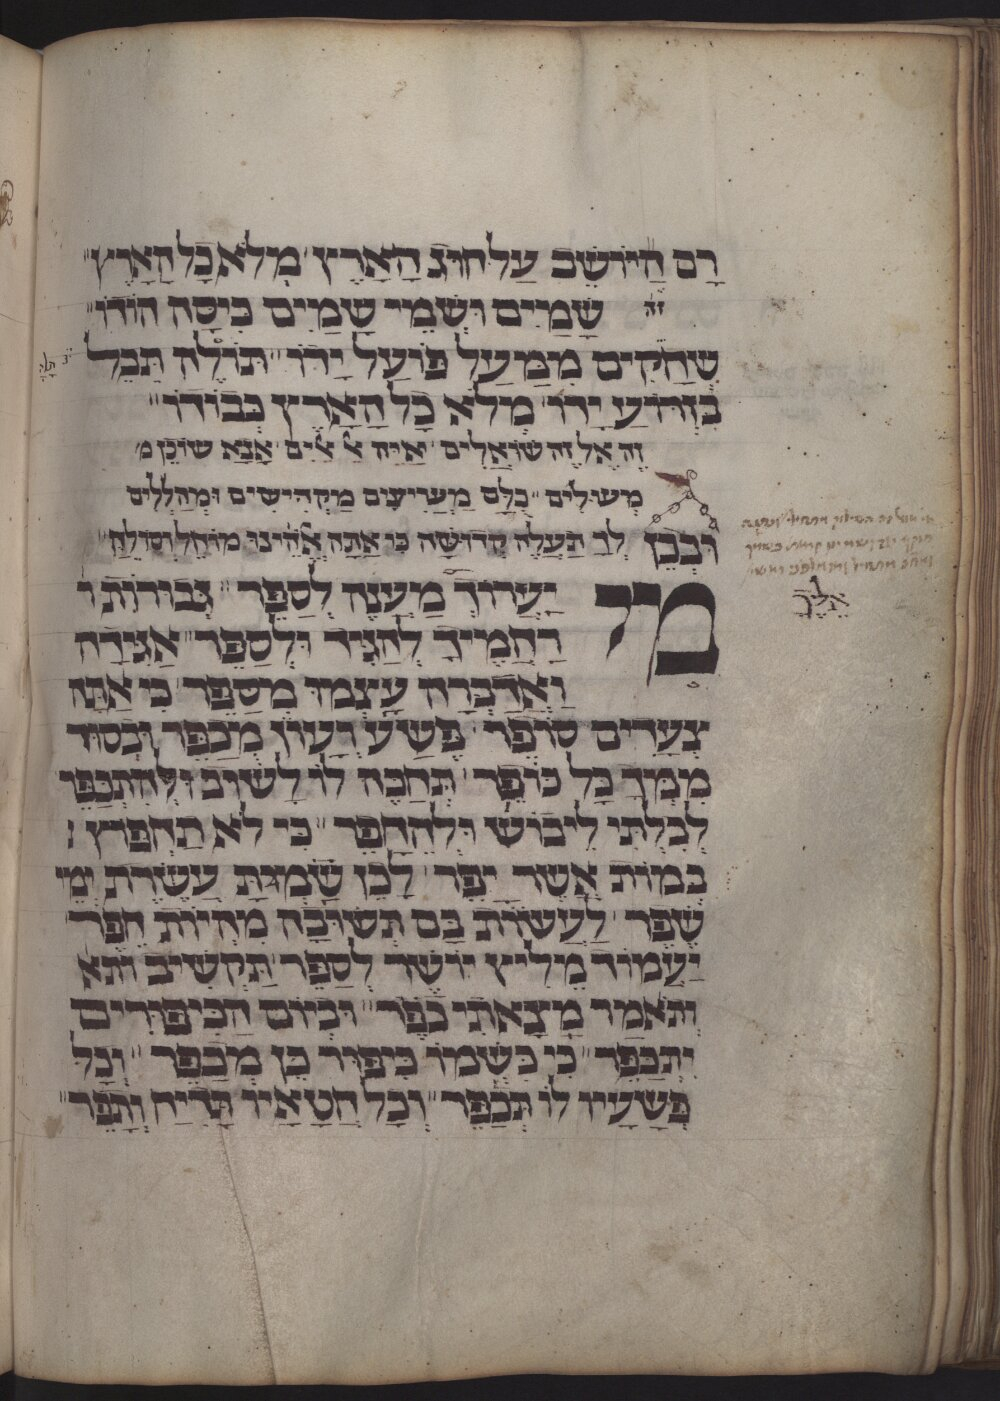 רָם הַיּוֹשֵׁב עַל חוּג הָאָרֶץ מְלֹא כָל הָאָרֶץ
שָׁמַיִם וּשְׁמֵי שָׁמַיִם כִּיסָּה הוֹדוֹ
שְׁחָקִים מִמַּעַל פּוֹעַל יָדוֹ תּוֹלֶה תֵבֵל
בִּזְרוֹעַ יָדוֹ מְלֹא כָל הָאָרֶץ כְּבוֹדוֹ
זֶה אֶל זֶה שׁוֹאֲלִים אַיֵּה אֵל אֵלִים אָנָא שׁוֹכֵן מ
מְעוּלִים כֻּלָּם מַעֲרִיצִים מַקְדִּישִׁים וּמְהַלְלִים
וּבְכֵן לְךָ תַעֲלֶה קְדוּשָּׁה כִּי אַתָּה אֱלֹהֵינוּ מוֹחֵל וְסוֹלֵחַ
מִי יַעֲרוֹךְ מַעֲנֶה לְסַפֵּר גְּבוּרוֹת ו
רַחֲמֶיךָ לְהַגִּיד וּלְסַפֵּר אַגִּידָה
וַאֲדַבְּרָה עָצְמוּ מִסַּפֵּר כִּי אַתָּה
צְעָדִים סוֹפֵר פֶּשַׁע וְעָוֹן מְכַפֵּר וּבְסוֹד
מִמְּךָ כָּל כּוֹפֶר תְּחַכֶּה לוֹ לָשׁוּב וּלְהִתְכַּפֵּר
לְבִלְתִּי לֵיבוֹשׁ וּלְהֵחָפֵר כִּי לֹא תַחְפֹּץ
בְּמוֹת אֲשֶׁר יָפֵר לָכֵן שַׂמְתָּ עֲשֶׂרֶת יְמֵי
שֶׁפֶר לַעֲשׂוֹת בָּם תְּשׁוּבָה מִהְיוֹת חֶפֶר
יַעֲמוֹד מֵלִיץ יוֹשֶׁר לְסַפֵּר תַּקְשִׁיב וּתְא
וְתֹאמַר מָצָאתִי כֹפֶר וּבְיוֹם הַכִּיפּוּרִים
יִתְכַּפֵּר כִּי כִּשְׁמוֹ כִּיפּוּר כֵּן מְכַפֵּר וְכָל
פְּשָׁעָיו לוֹ תְּכַפֵּר וְכָל חֲטָאָיו תַּדִּיחַ וְתָפֵר